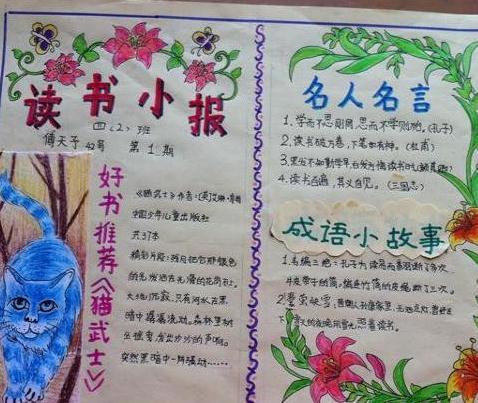 读书小报
四〈2〉班
傅天予 42号 第1期
好书推荐《猫武士》
《猫武士》作者:[英]艾琳·亨特
中国少年儿童出版社
共37本
精彩片段:残月把它那银色
的光发洒在光滑的花岗石上。
大地沉寂,只有河水在黑
暗中潺潺流动。森林里树
发出沙沙的声响。
突然黑暗中一阵骚动……
名人名言
1.学而不思则罔,思而不学则殆。(孔子)
2.读书破万卷,下笔如有神。(杜甫)
3.黑发不知勤学早,白发方悔读书迟。(颜真卿)
4.读书百遍,其义自见。(三国志)
成语小故事
1.韦编三绝:孔子为读易而翻断了多次
牛皮带子的简,编连竹简的皮绳断了三次。
2.囊萤映雪:晋朝人孙康家里
冬天的夜晚用雪光照着读书。